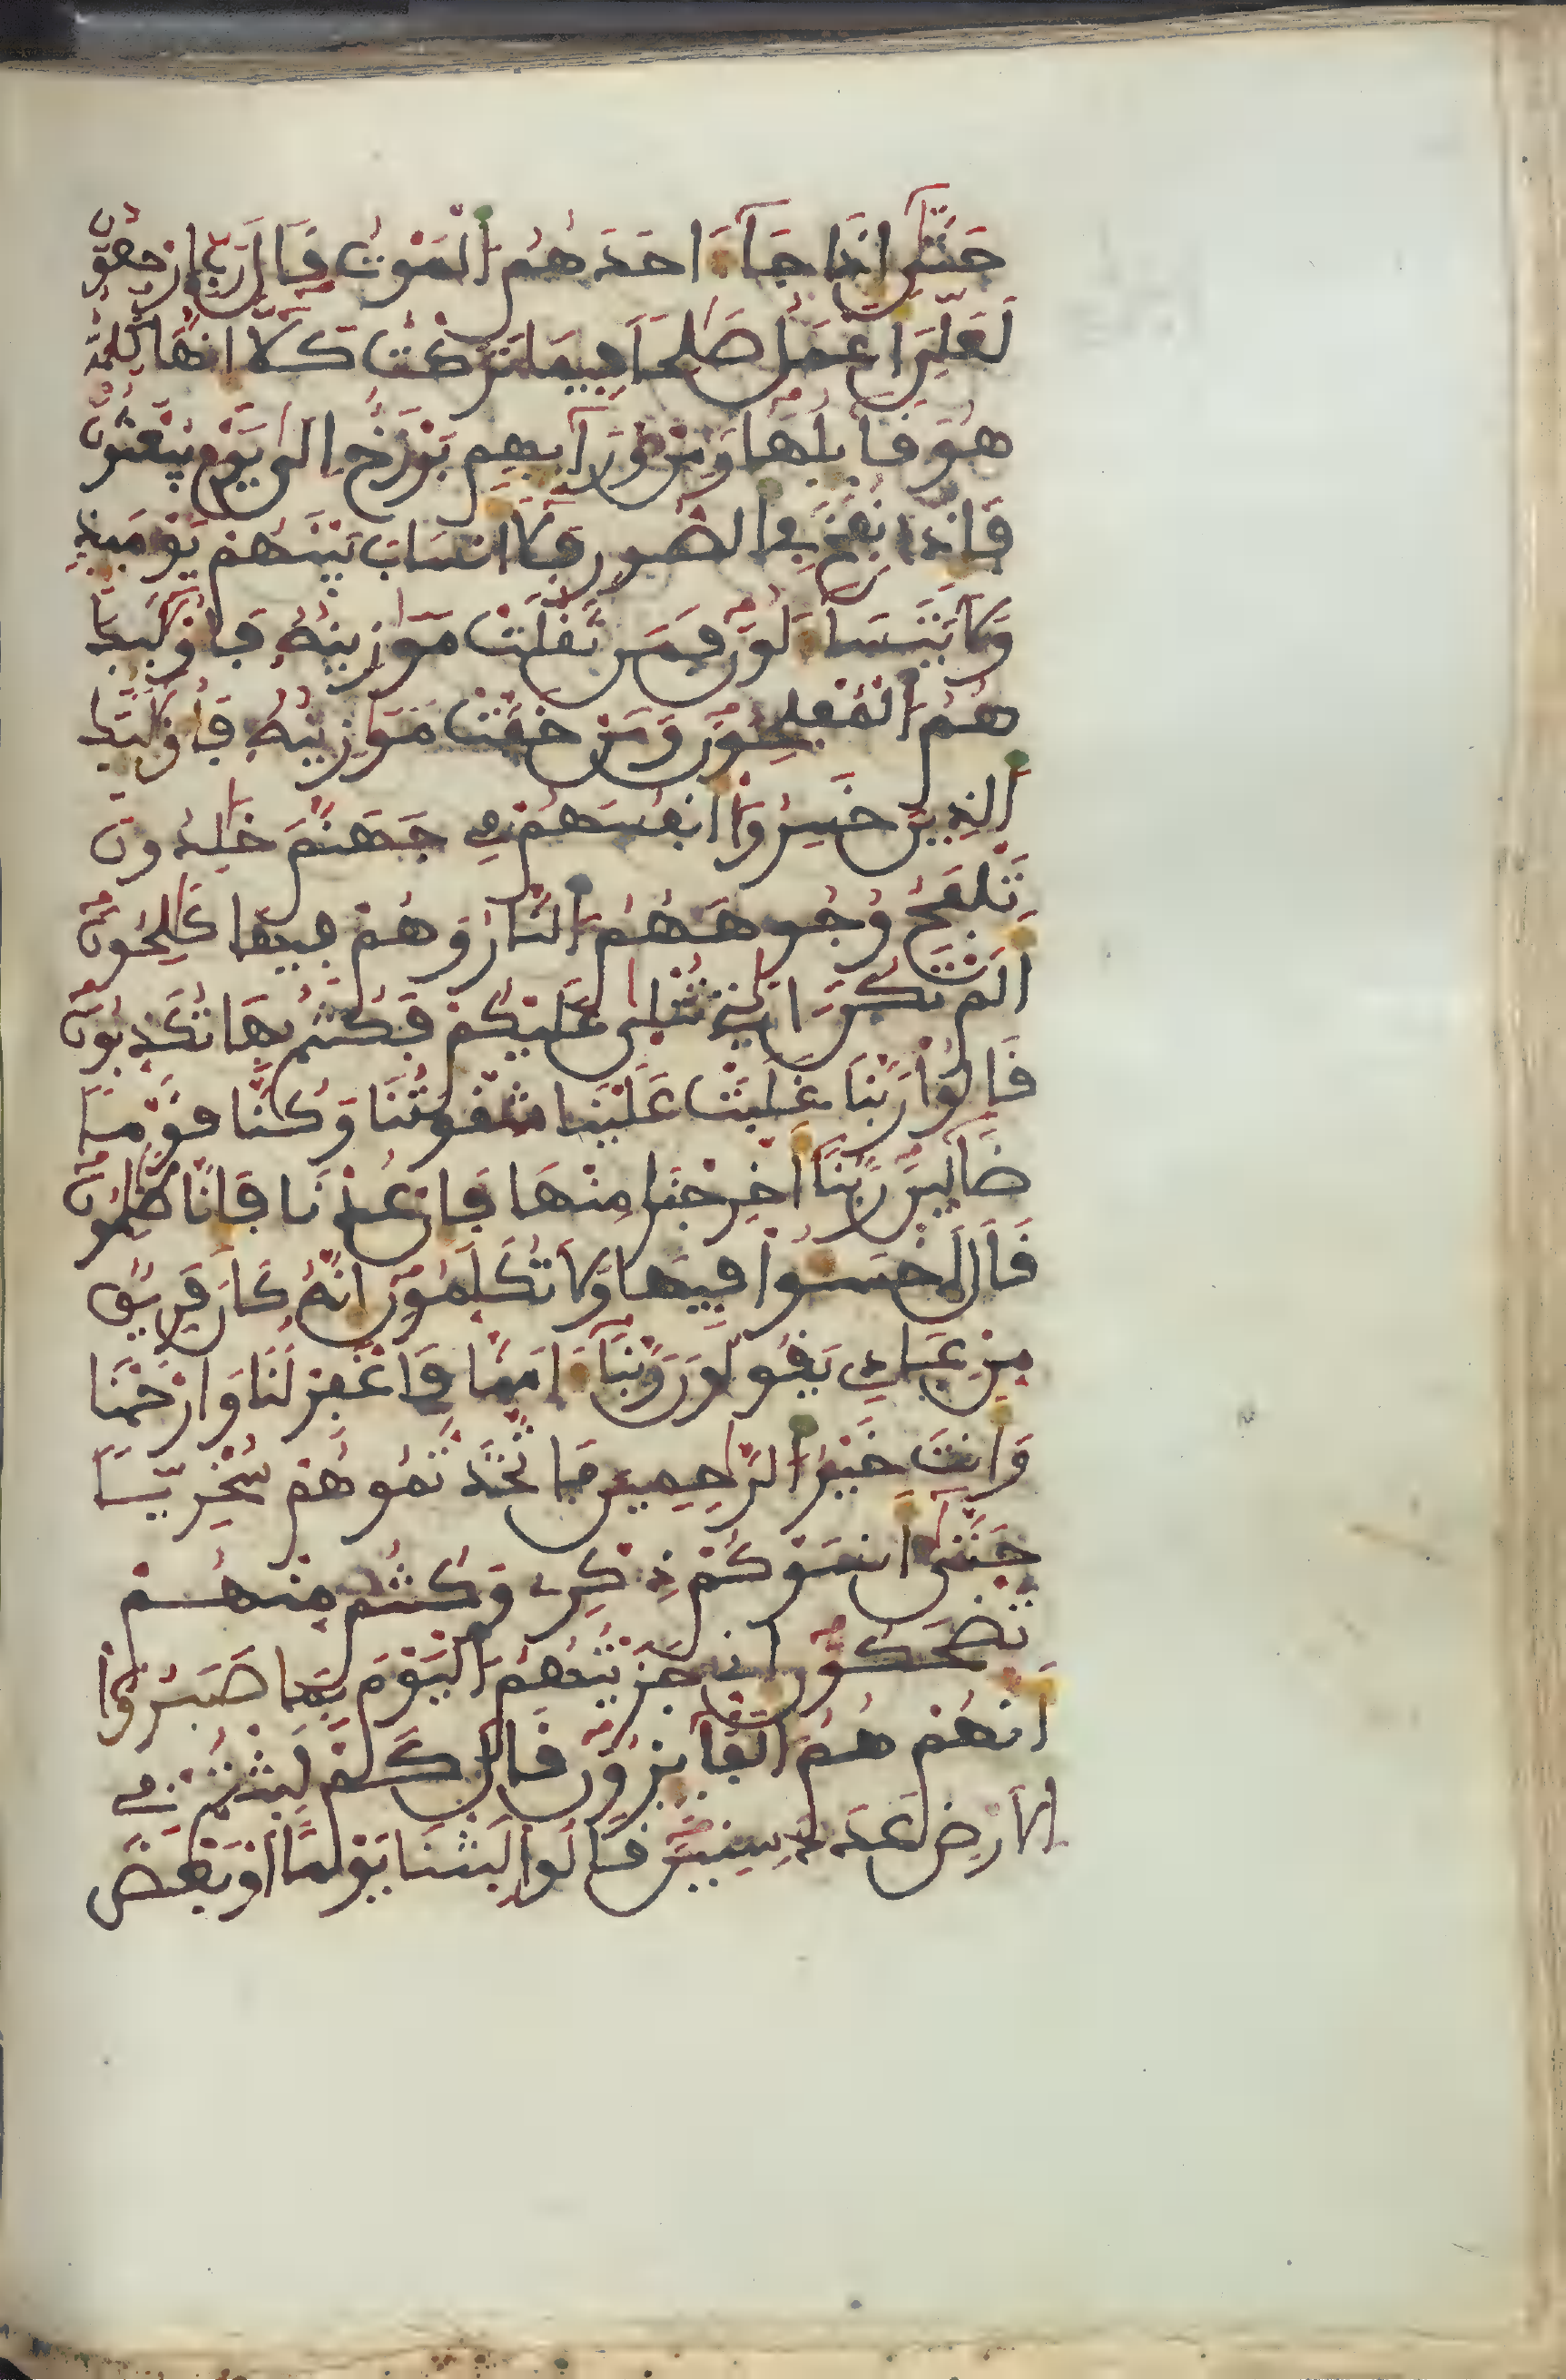 حَتَّىٰ إِذَا جَآءَ احَدَهُمُ الْمَوْتُ قَالَ رَبِّ ارْجِعُونِ
لَعَلِّيَ أَعْمَلُ صَٰلِحاً فِيمَا تَرَكْتُ كَلَّا إِنَّهَا كَلِمَةٌ
هُوَ قَآئِلُهَا وَمِنْ وَرَآئِهِم بَرْزَخٌ إِلَىٰ يَوْمِ يُبْعَثُونَ
فَإِذَا نُفِخَ فِي الصُّورِ فَلَا أَنسَابَ بَيْنَهُمْ يَوْمَئِذٍ
وَلَا يَتَسَآءَلُونَ فَمَن ثَقُلَتْ مَوَٰزِينُهُ فَأُوْلَٰٓئِكَ
هُمُ الْمُفْلِحُونَ وَمَنْ خَفَّتْ مَوَٰزِينُهُ فَأُوْلَٰٓئِكَ
الَّذِينَ خَسِرُوٓا أَنفُسَهُمْ فِي جَهَنَّمَ خَٰلِدُونَ
تَلْفَحُ وُجُوهَهُمُ النَّارُ وَهُمْ فِيهَا كَٰلِحُونَ
أَلَمْ تَكُنَ اٰيَٰتِي تُتْلَىٰ عَلَيْكُمْ فَكُنتُم بِهَا تُكَذِّبُونَ
قَالُوا رَبَّنَا غَلَبَتْ عَلَيْنَا شِقْوَتُنَا وَكُنَّا قَوْماً
ضَآلِّينَ رَبَّنَآ أَخْرِجْنَا مِنْهَا فَإِنْ عُدْنَا فَإِنَّا ظَٰلِمُونَ
قَالَ اخْسَـُٔوا فِيهَا وَلَا تُكَلِّمُونِ إِنَّهُ كَانَ فَرِيقٌ
مِّنْ عِبَادِي يَقُولُونَ رَبَّنَآ ءَامَنَّا فَاغْفِرْ لَنَا وَارْحَمْنَا
وَأَنتَ خَيْرُ الرَّٰحِمِينَ فَاتَّخَذتُّمُوهُمْ سُخْرِيّاً
حَتَّىٰٓ أَنسَوْكُمْ ذِكْرِي وَكُنتُم مِّنْهُمْ
تَضْحَكُونَ إِنِّي جَزَيْتُهُمُ الْيَوْمَ بِمَا صَبَرُوٓا
أَنَّهُمْ هُمُ الْفَآئِزُونَ قَالَ كَمْ لَبِثْتُمْ فِي
الَارْضِ عَدَدَ سِنِينَ قَالُوا لَبِثْنَا يَوْماً أَوْ بَعْضَ